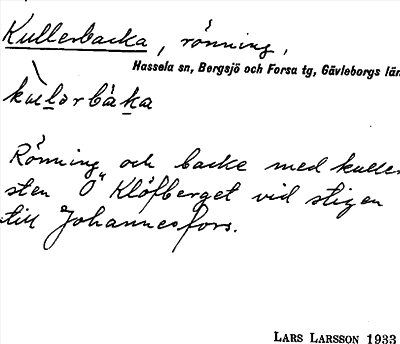 Kullerbacka, rönning,
Hassela sn, Bergsjö och Forsa tg, Gävleborgs län
kulərbàka
Rönning och backe med kuller-
sten O Klöfberget vid stigen
till Johannesfors.
LARS LARSSON 1933